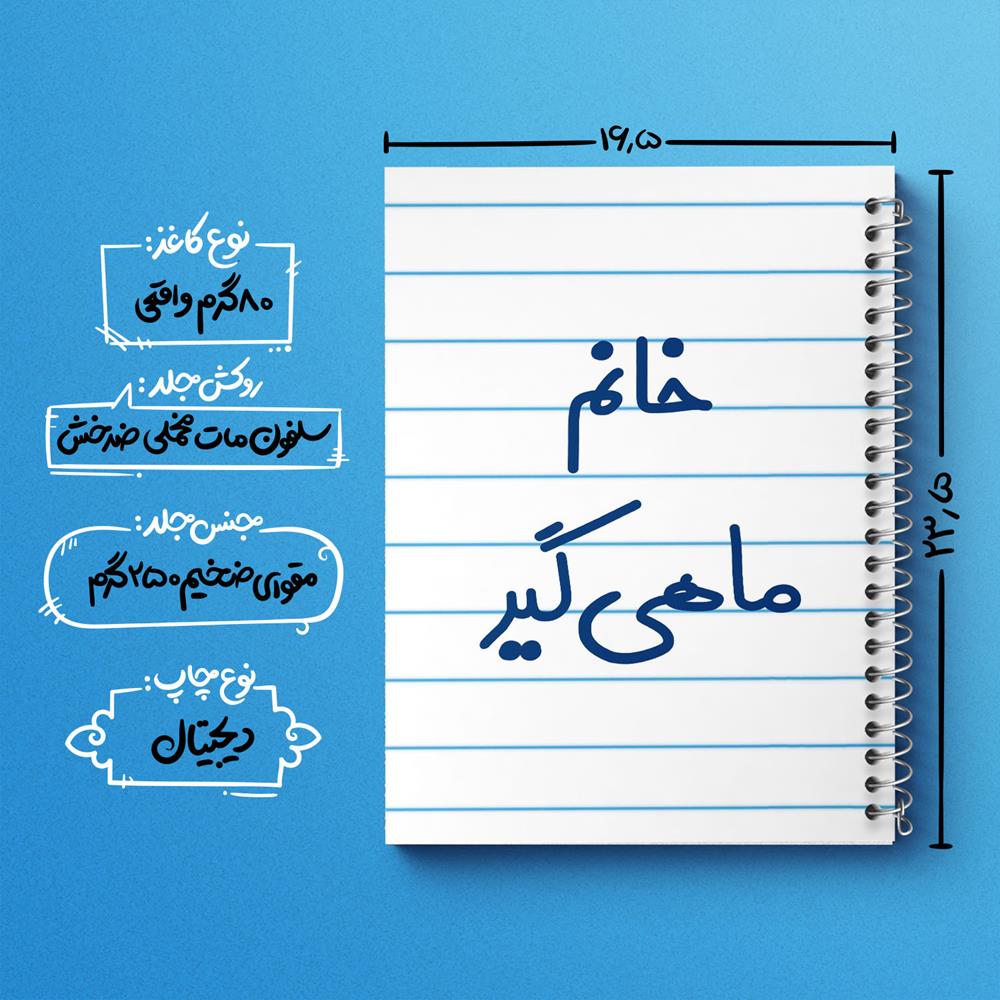 ۱۶٫۵
۲۳٫۵
خانم
ماهی گیر
نوع کاغذ:
۸۰ گرم واقعی
روکش جلد:
سلفون مات مخملی ضدخش
جنس جلد:
مقوای ضخیم ۲۵۰ گرم
نوع چاپ:
دیجیتال